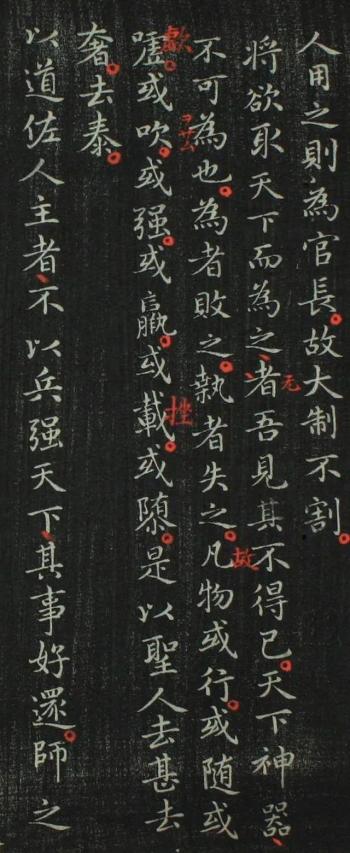 人用之則為官長故大制不割
將欲取天下而為之者吾見其不得已天下神器
不可為也為者敗之執者失之凡物或行或随或
嘘或吹或强或羸或載或隳是以聖人去甚去
奢去泰
以道佐人主者不以兵强天下其事好還師之
无
故
歔
挫